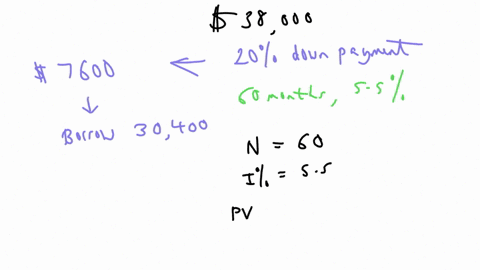 $ 38,000
$ 7600 ← 20% down payment
60 months, 5.5%
↓
Borrow 30,400
N = 60
I% = 5.5
PV